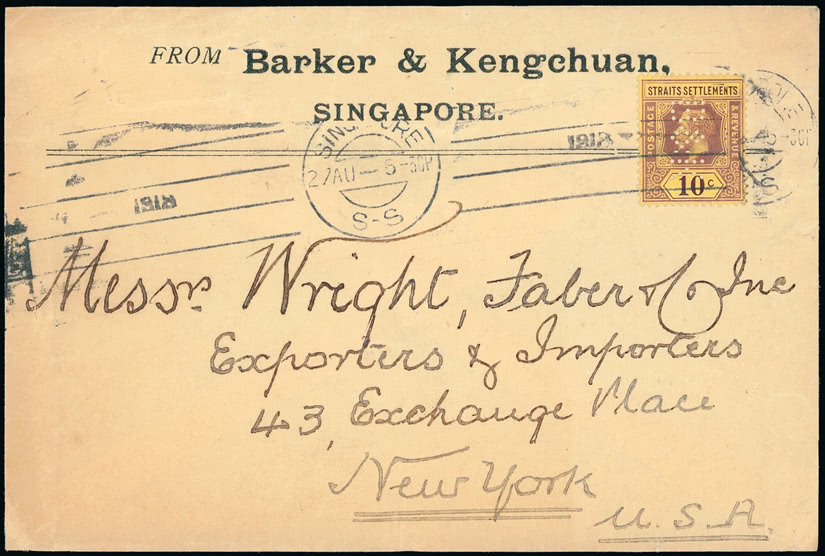 FROM Barker & Kengchuan,
SINGAPORE.
STRAITS SETTLEMENTS
POSTAGE & REVENUE
10c
SINGAPORE
27AU - 5-30P
S-S
1913
1913
Messrs Wright, Faber & Co Inc
Exporters & Importers
43, Exchange Place
New York
U.S.A.